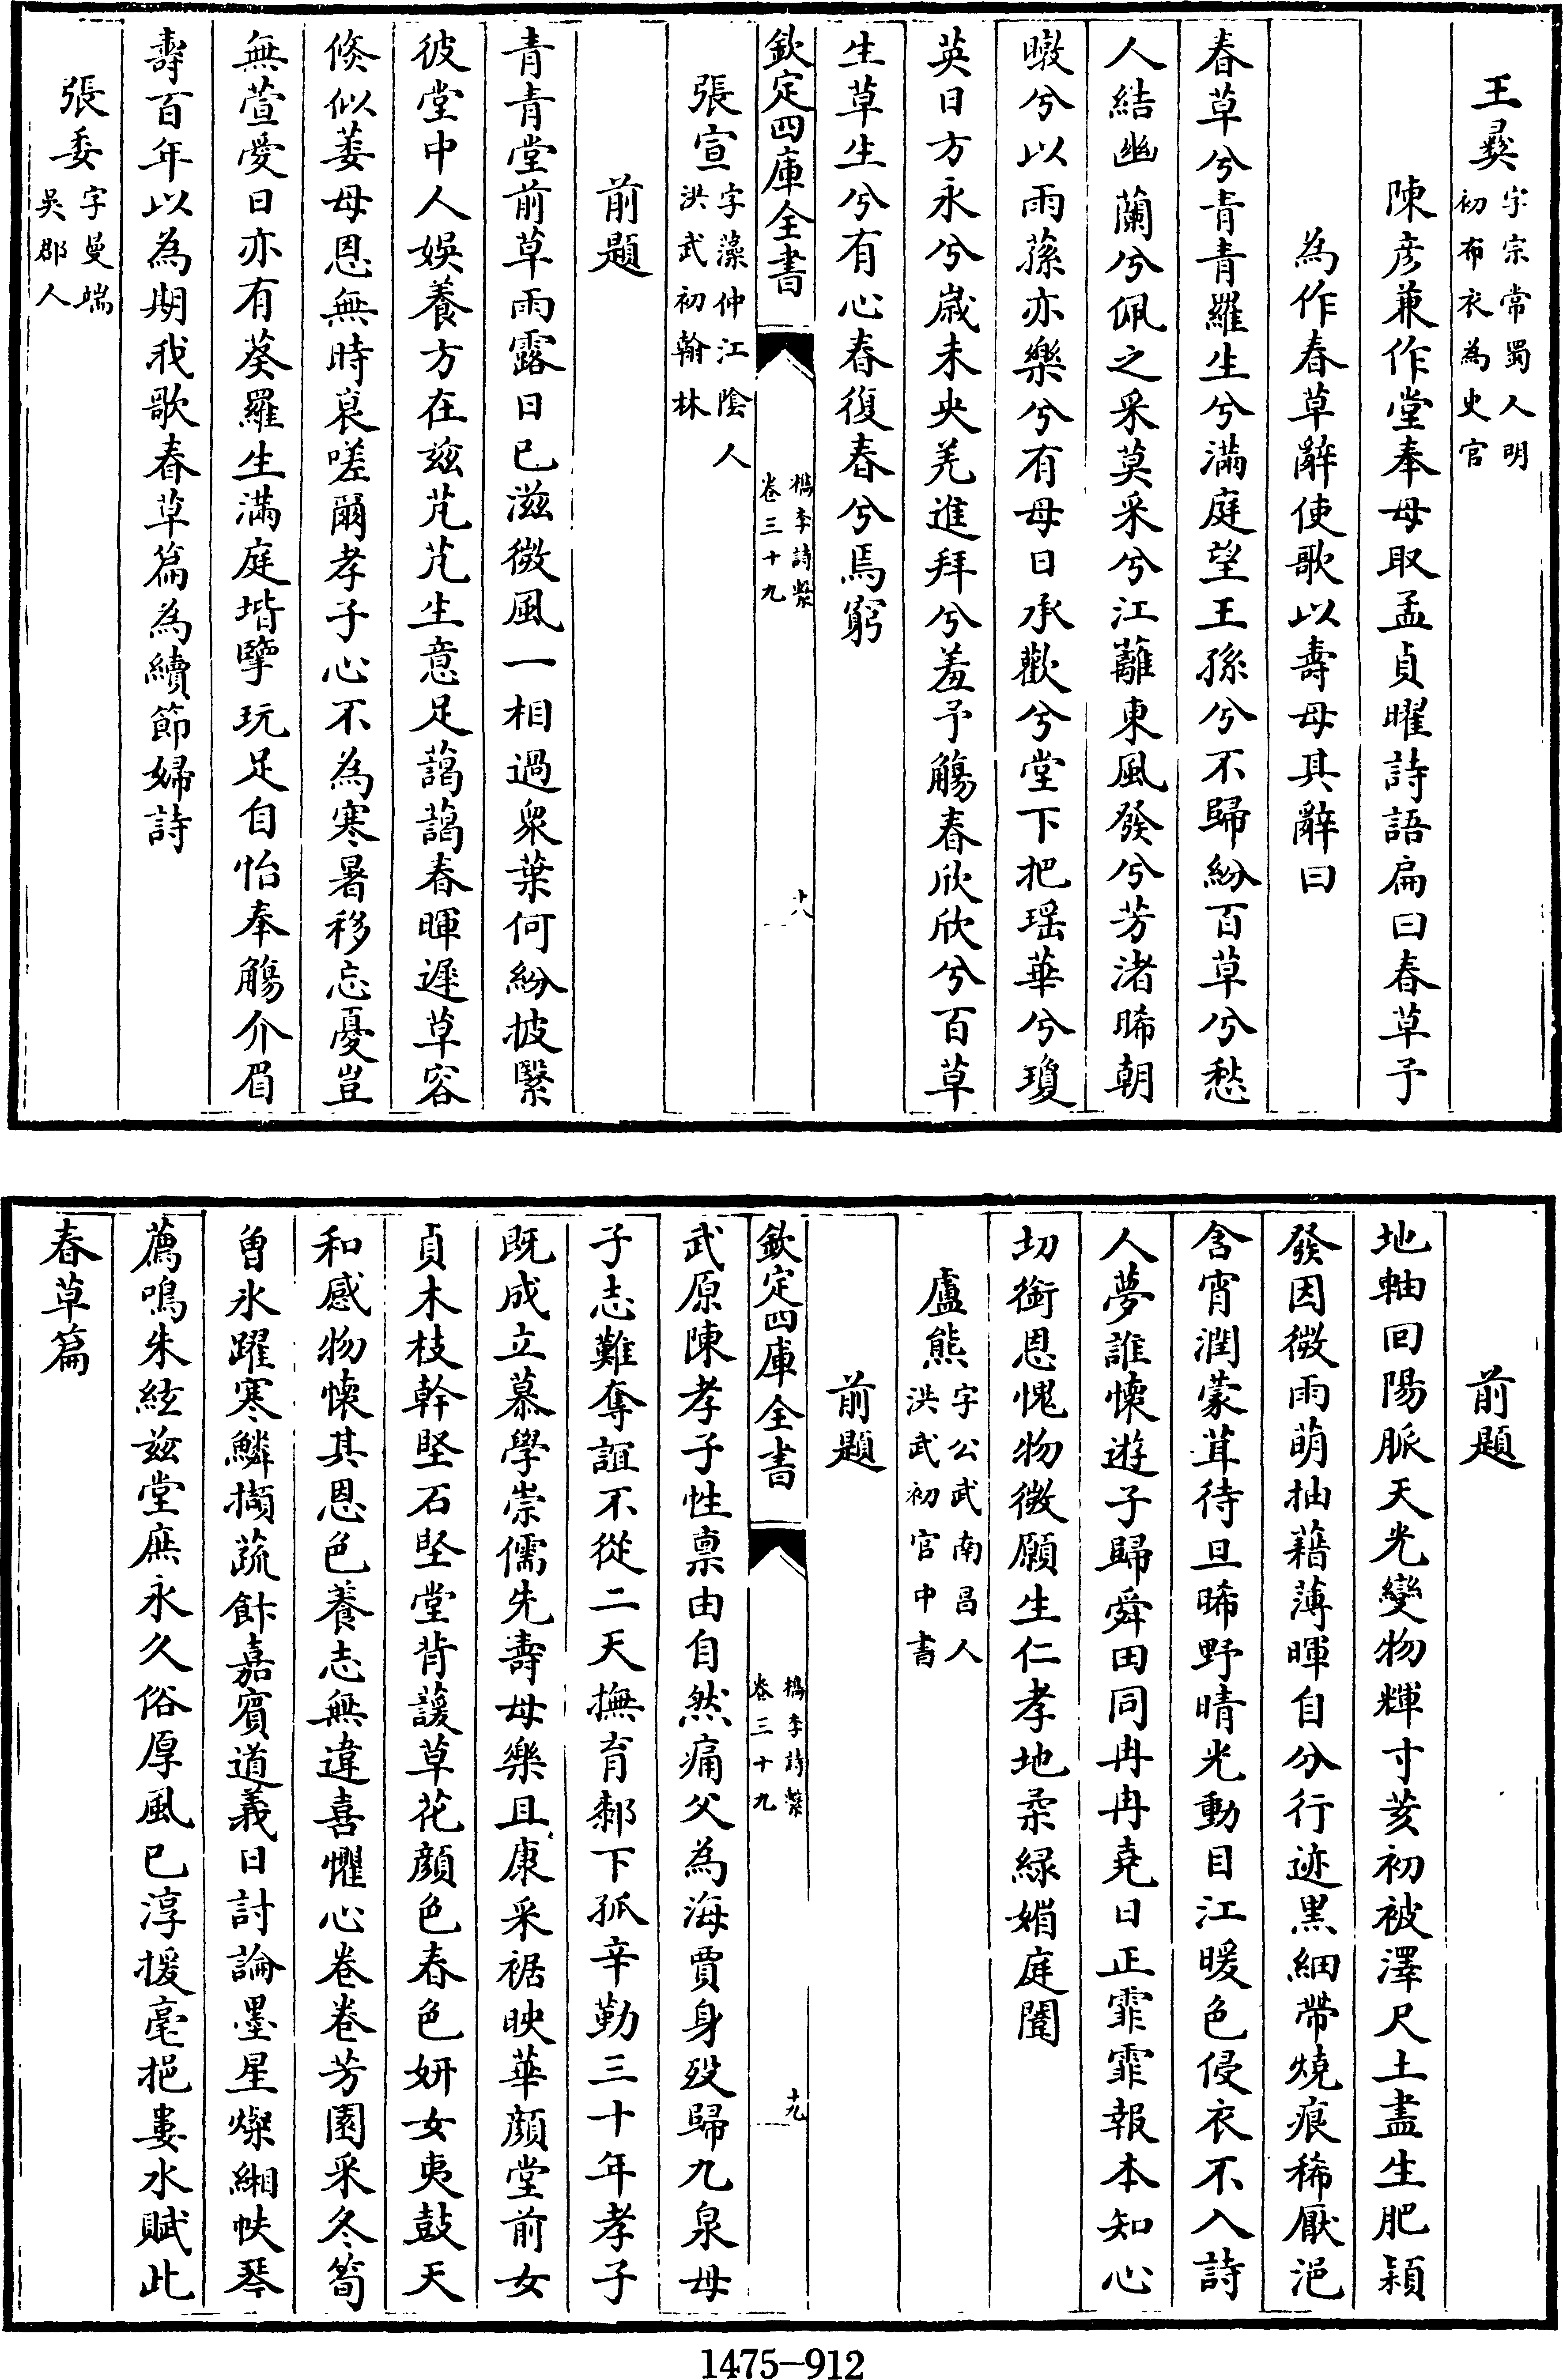 王彝字宗常蜀人明初布衣為史官
陳彦兼作堂奉母取孟貞曜詩語扁曰春草予
為作春草辭使歌以壽母其辭曰
春草兮青青羅生兮滿庭望王孫兮不歸紛百草兮愁
人結幽蘭兮佩之采莫采兮江蘺東風發兮芳渚晞朝
暾兮以雨蓀亦樂兮有母日承歡兮堂下把瑶華兮瓊
英日方永兮歲未央羌進拜兮羞予觴春欣欣兮百草
生草生兮有心春復春兮焉窮
欽定四庫全書
檇李詩繫
卷三十九
十八
張宣字藻仲江陰人洪武初翰林
前題
青青堂前草雨露日已滋微風一相過衆葉何紛披繄
彼堂中人娛養方在兹芃芃生意足藹藹春暉遲草容
倏似萎母恩無時衰嗟爾孝子心不為寒暑移忘憂豈
無萱愛日亦有葵羅生滿庭堦擥玩足自怡奉觴介眉
壽百年以為期我歌春草篇為續節婦詩
張委字曼端吳郡人
前題
地軸回陽脈天光變物輝寸荄初被澤尺土盡生肥穎
發因微雨萌抽藉薄暉自分行迹黑細帶燒痕稀厭浥
含宵潤蒙茸待旦晞野晴光動目江暖色侵衣不入詩
人夢誰懷遊子歸舜田同冉冉堯日正霏霏報本知心
切銜恩愧物微願生仁孝地柔緑媚庭闈
盧熊字公武南昌人洪武初官中書
前題
欽定四庫全書
檇李詩繫
卷三十九
十九
武原陳孝子性禀由自然痛父為海賈身殁歸九泉母
子志難奪誼不從二天撫育鄰下孤辛勤三十年孝子
既成立慕學崇儒先壽母樂且康采裾映華顔堂前女
貞木枝幹堅石堅堂背諼草花顔色春色妍女夷鼓天
和感物懷其恩色養志無違喜懼心卷卷芳園采冬筍
曾氷躍寒鱗擷蔬飰嘉賓道義日討論墨星燦緗帙琴
薦鳴朱絃兹堂庶永久俗厚風已淳援毫挹婁水賦此
春草篇
1475-912